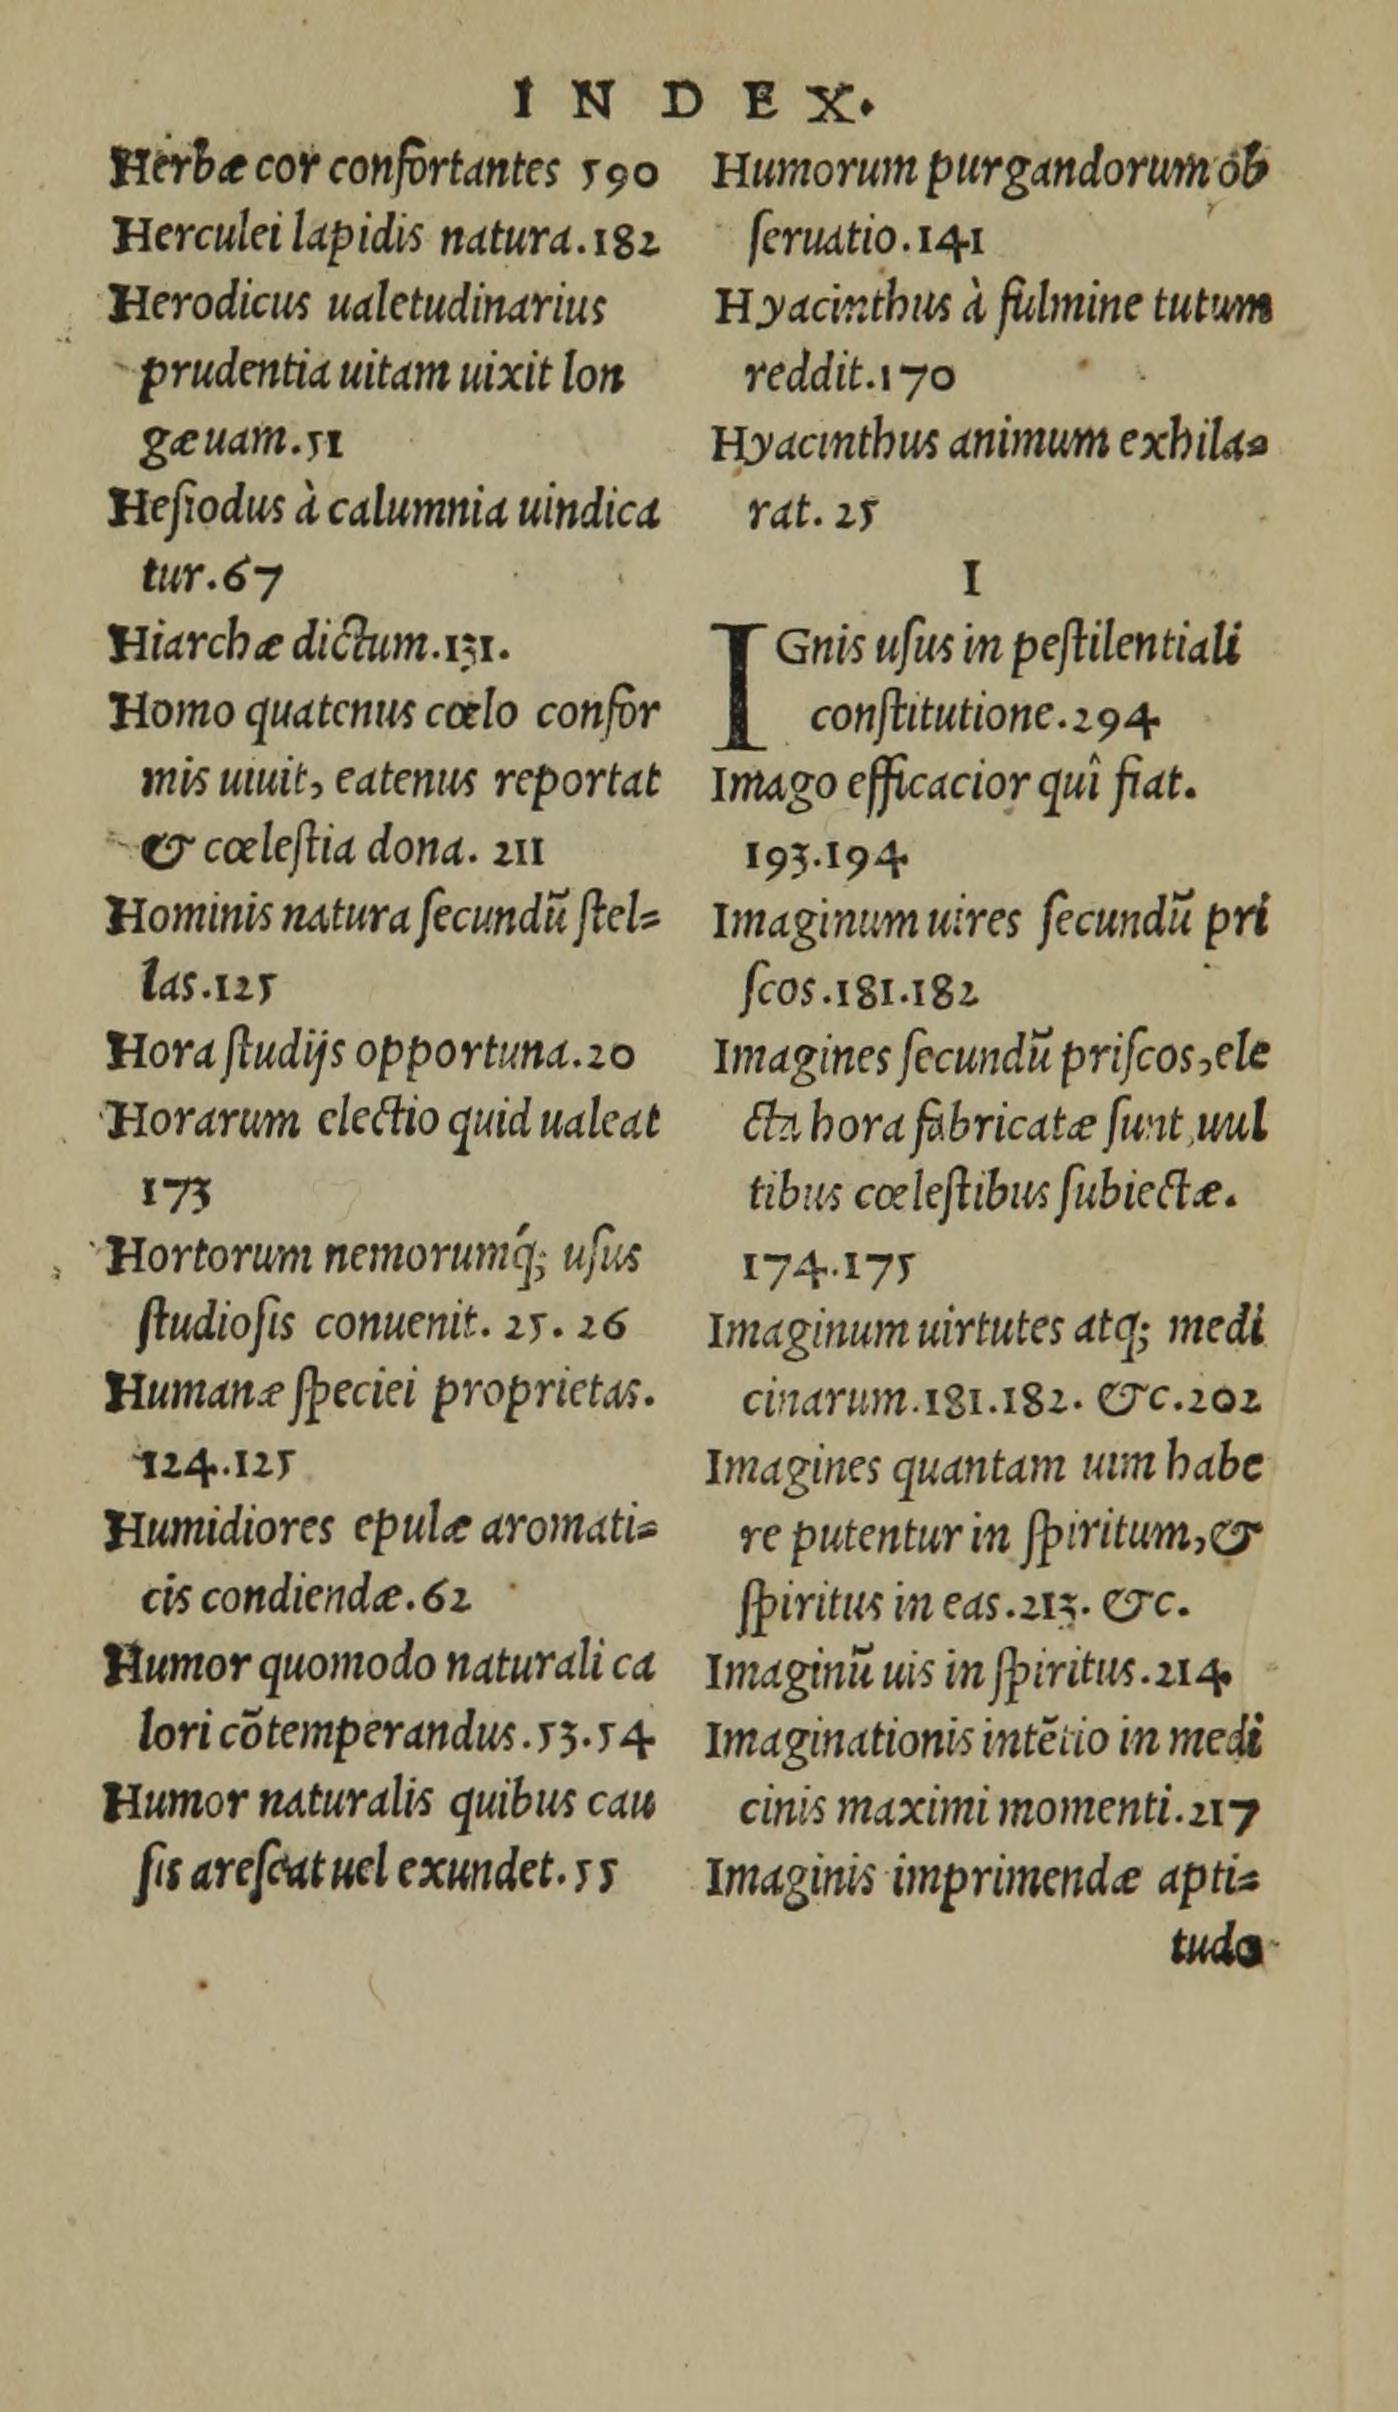 INDEX.
Herbæ cor confortantes 590
Herculei lapidis natura.182
Herodicus ualetudinarius
prudentia uitam uixit lon
gæuam.51
Heſiodus à calumnia uindica
tur.67
Hiarchæ dictum.131.
Homo quatenus cœlo confor
mis uiuit, eatenus reportat
& cœleſtia dona. 211
Hominis natura ſecundũ ſtel=
las.125
Hora ſtudijs opportuna.20
Horarum electio quid ualeat
173
Hortorum nemorumq́; uſus
ſtudioſis conuenit. 25. 26
Humanæ ſpeciei proprietas.
124.125
Humidiores epulæ aromati=
cis condiendæ.62
Humor quomodo naturali ca
lori cõtemperandus.53.54
Humor naturalis quibus cau
ſis areſcat uel exundet.55
Humorum purgandorum ob
ſeruatio.141
Hyacinthus à fulmine tutum
reddit.170
Hyacinthus animum exhila=
rat. 25
I
IGnis uſus in peſtilentiali
conſtitutione.294
Imago efficacior quî fiat.
193.194
Imaginum uires ſecundũ pri
ſcos.181.182
Imagines ſecundũ priſcos, ele
cta hora fabricatæ ſunt, uul
tibus cœleſtibus ſubiectæ.
174.175
Imaginum uirtutes atq; medi
cinarum.181.182. &c.202
Imagines quantam uim habe
re putentur in ſpiritum, &
ſpiritus in eas.213. &c.
Imaginũ uis in ſpiritus.214
Imaginationis intẽtio in medi
cinis maximi momenti.217
Imaginis imprimendæ apti=
tudo